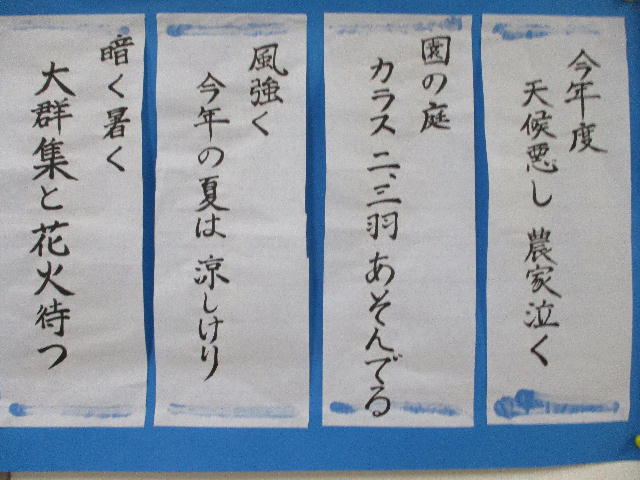 今年度
天候悪し 農家泣く
園の庭
カラス 二、三羽 あそんでる
風強く
今年の夏は 涼しけり
暗く暑く
大群集と花火待つ